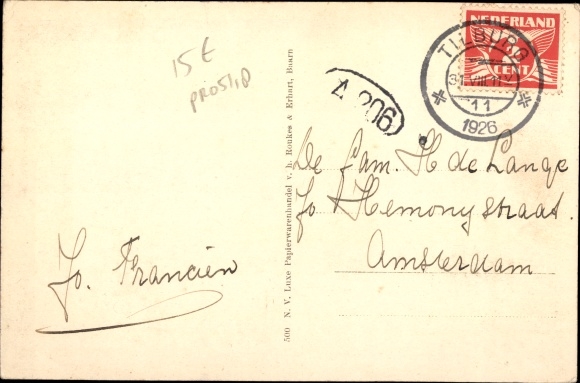 15 €
NEDERLAND
CENT
TILBURG
31.VIII.11-V
11
1926
A 206
De Fam. H de Lange
Jo Hemonystraat.
Amsterdam
Jo. Francien
500 N. V. Luxe Papierwarenhandel v. h. Roukes & Erhart, Baarn